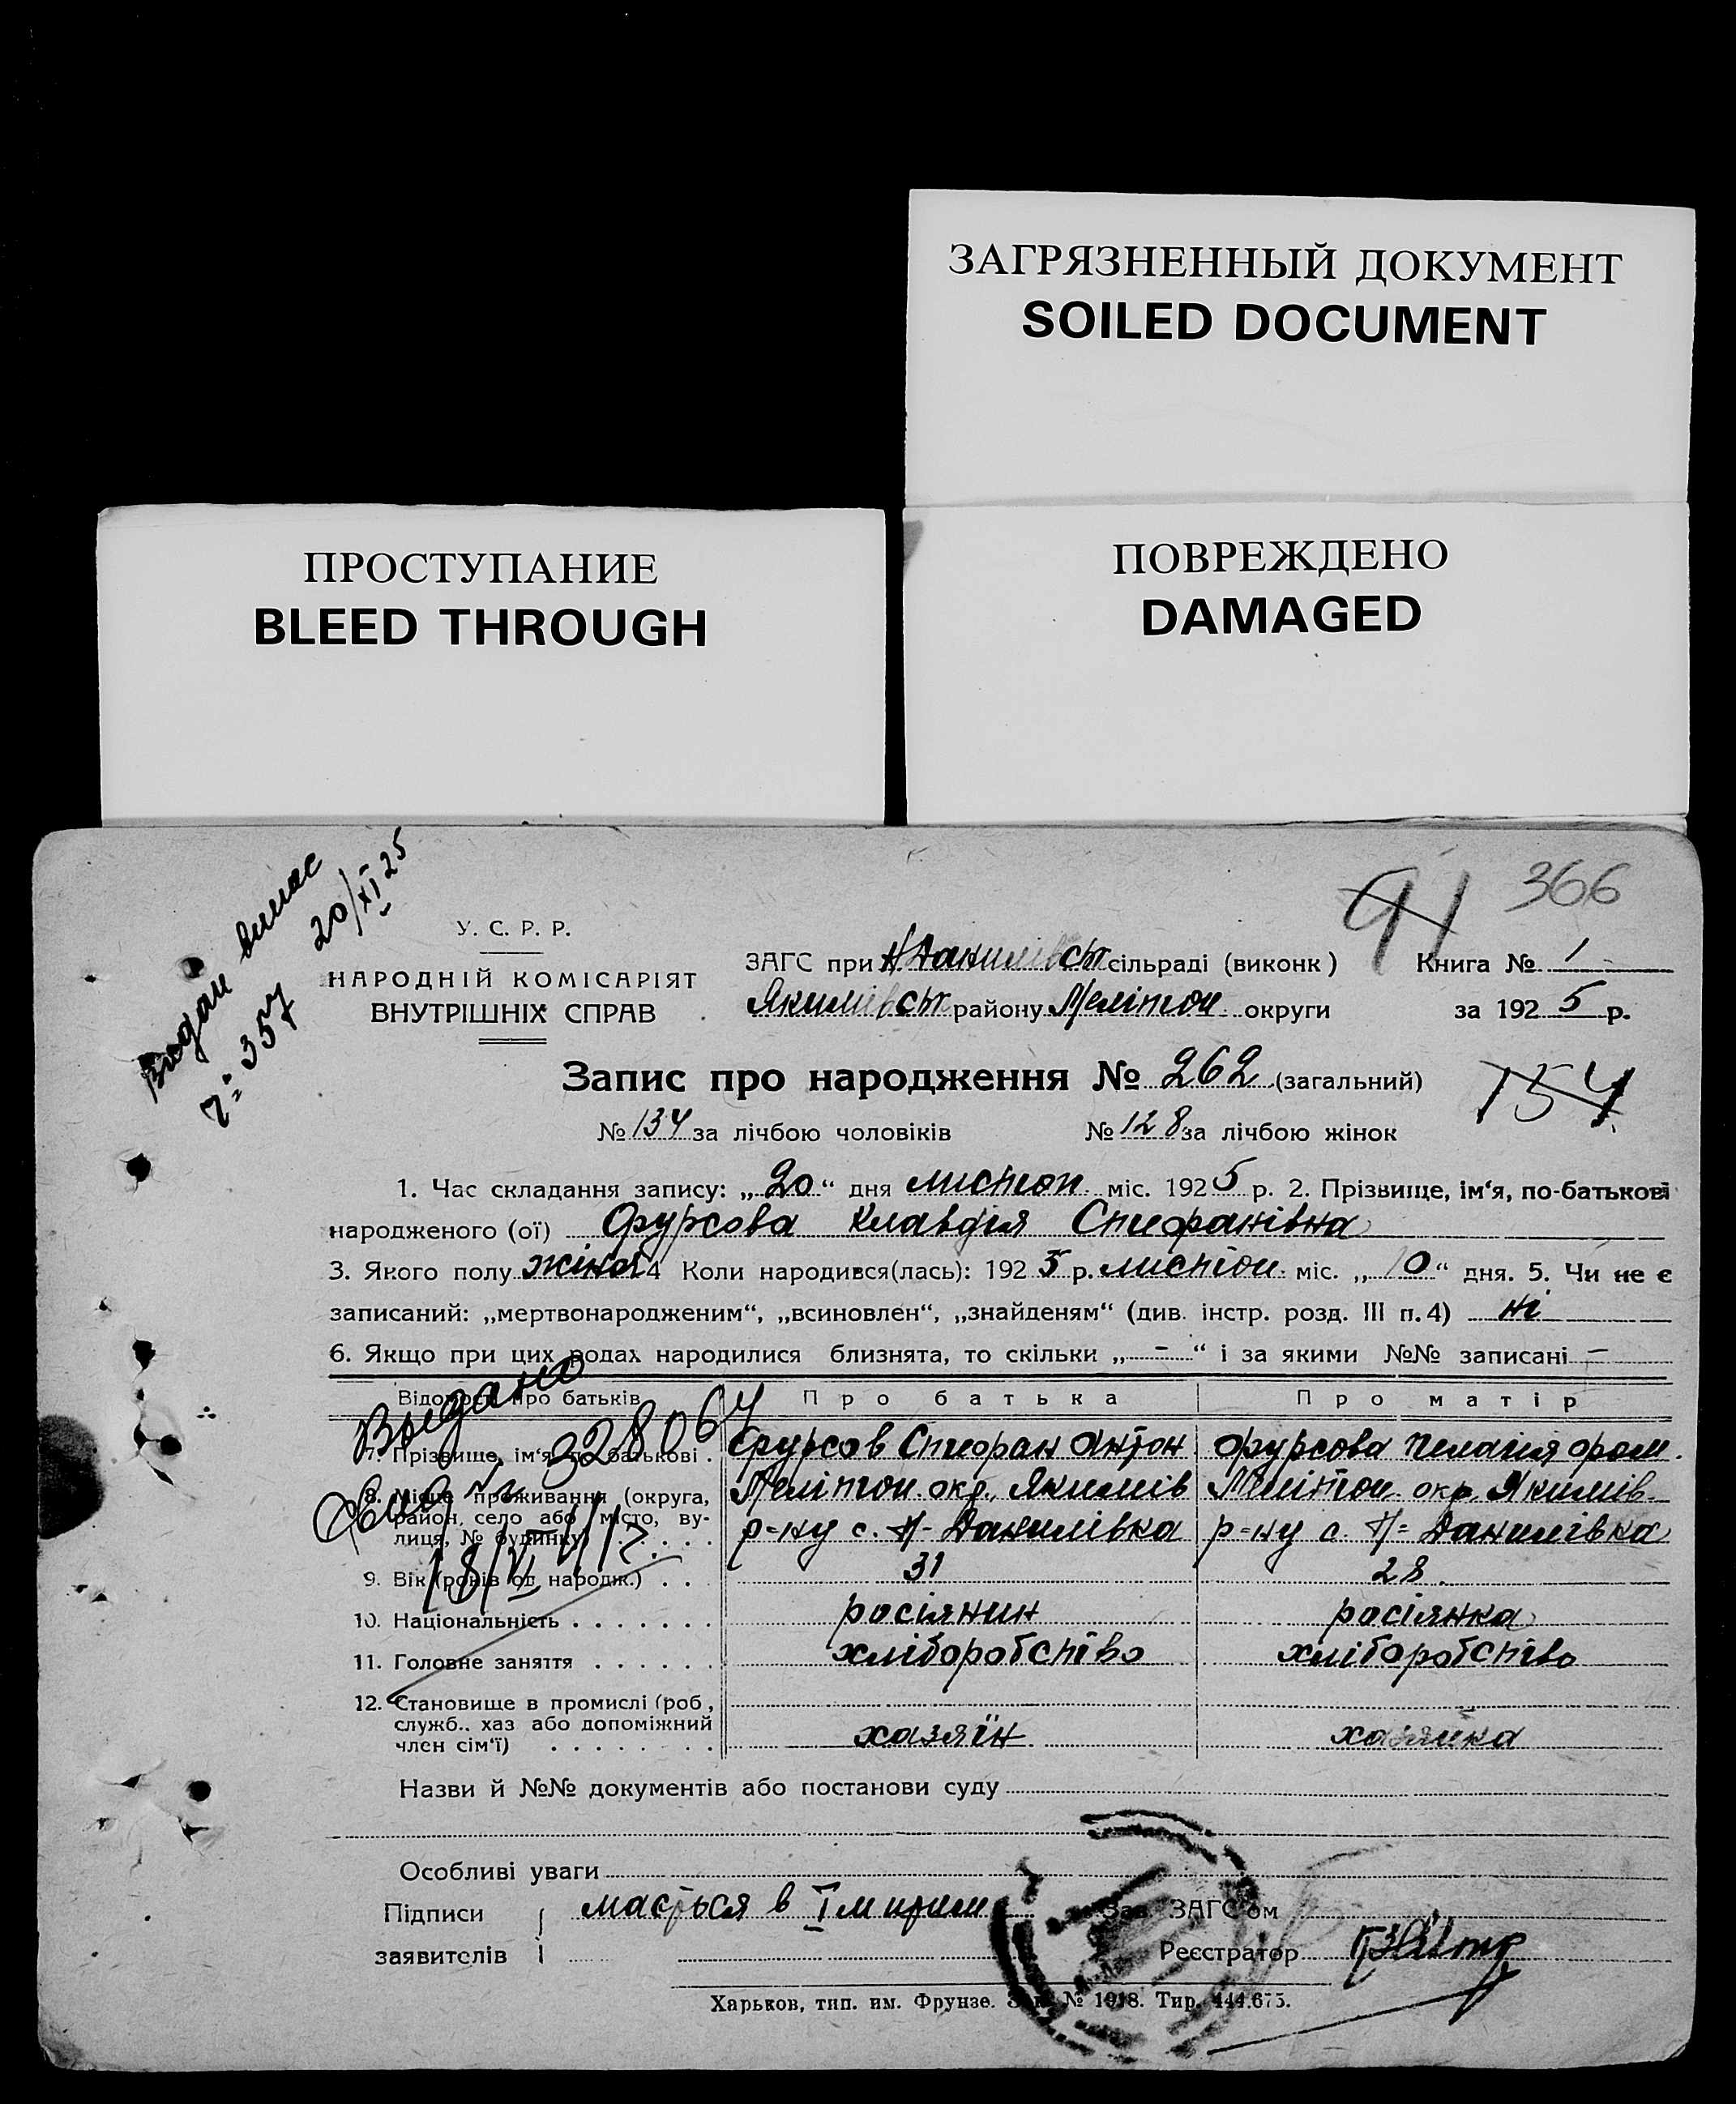 ЗАГРЯЗНЕННЫЙ ДОКУМЕНТ
SOILED DOCUMENT
ПРОСТУПАНИЕ
BLEED THROUGH
ПОВРЕЖДЕНО
DAMAGED
Видан випис
№ 357 20/XI 25
91 366
У. С. Р. Р.
НАРОДНІЙ КОМІСАРІЯТ
ВНУТРІШНІХ СПРАВ
ЗАГС при Н Данилівськ сільраді (виконк) Книга № 1
Якимівськ району Мелітоп. округи за 1925 р.
Запис про народження № 262 (загальний)
154
№ 134 за лічбою чоловіків № 128 за лічбою жінок
1. Час складання запису: „20“ дня листоп. міс. 1925 р. 2. Прізвище, ім‘я, по-батькові
народженого (ої) Фурсова Клавдія Стефанівна
3. Якого полу жіноч 4 Коли народився(лась): 1925 р. листоп. міс. „10“ дня. 5. Чи не є
записаний: „мертвонародженим“, „всиновлен“, „знайденям“ (див. інстр. розд. III п. 4) ні
6. Якщо при цих родах народилися близнята, то скільки „-“ і за якими №№ записані -
Відомості про батьків Про батька Про матір
Выдано
328064
7. Прізвище, ім‘я по батькові . Фурсов Стефан Антон Фурсова Пелагія
8. Місце проживання (округа, район, село або місто, вулиця, № будинку) Мелітоп. окр., Якимів Мелітоп. окр. Якимів.
р-ну с. Н-Данилівка р-ну с. Н-Данилівка
9. Вік (років од народж.) . . 31 28
10. Національність . . . . . . . росіянин росіянка
11. Головне заняття . . . . . . хліборобство хліборобство
12. Становище в промислі (роб,
служб., хаз або допоміжний
член сім‘ї) . . . . . . . . хазяїн хазяйка
Назви й №№ документів або постанови суду
Особливі уваги
Підписи мається в I м прим Зав ЗАГС‘ом
заявителів Реєстратор
Харьков, тип. им. Фрунзе. Зак. № 1918. Тир. 444.675.